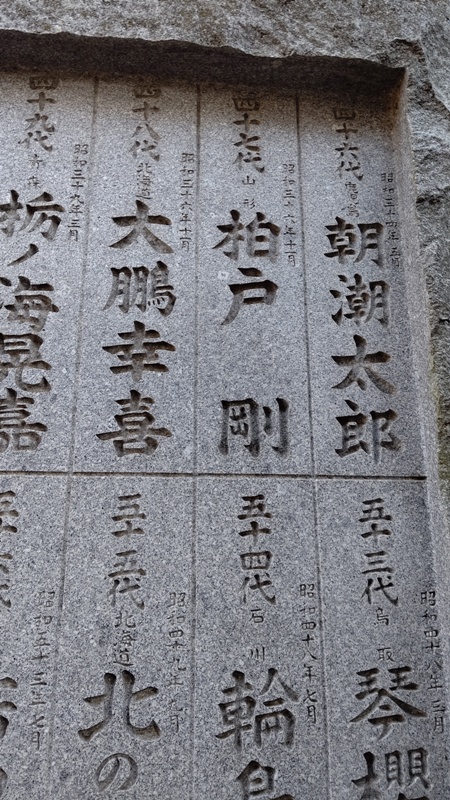 昭和三十四年五月
四十六代
朝潮太郎
昭和三十六年十一月
四十七代 山形
柏戸 剛
昭和三十六年十一月
四十八代 北海道
大鵬幸喜
昭和三十九年三月
四十九代 青森
栃ノ海晃嘉
昭和四十八年三月
五十三代 鳥取
琴櫻
昭和四十八年七月
五十四代 石川
輪
昭和四十九年九月
五十五代 北海道
北の
昭和五十三年七月